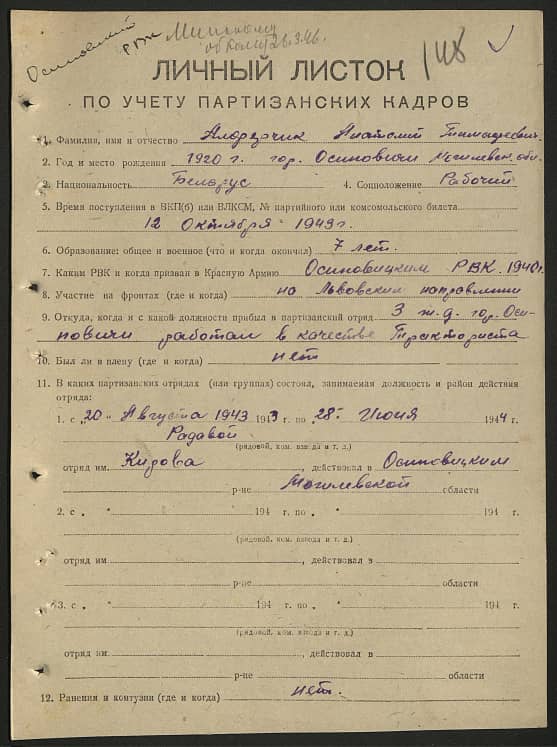 Осиповичский РВК Минскому
обкому 26.3.46.
148
ЛИЧНЫЙ ЛИСТОК
ПО УЧЕТУ ПАРТИЗАНСКИХ КАДРОВ
1. Фамилия, имя и отчество Анатолий Тимофеевич
2. Год и место рождения 1920 г. гор. Осиповичи Могилевск. обл.
3. Национальность Беларус 4. Соцположение Рабочий
5. Время поступления в ВКП(б) или ВЛКСМ, № партийного или комсомольского билета
12 Октября 1943 г.
6. Образование: общее и военное (что и когда окончил) 7 лет.
7. Каким РВК и когда призван в Красную Армию Осиповицким РВК. 1940 г.
8. Участие на фронтах (где и когда) на Львовским направлении
9. Откуда, когда и с какой должности прибыл в партизанский отряд З ж.д. гор. Оси-
повичи работал в качестве Тракториста
10. Был ли в плену (где и когда) нет
11. В каких партизанских отрядах (или группах) состоял, занимаемая должность и район действия
отряда:
1. с „20" Августа 1943 1943 г. по „28" Июня 1944 г.
Радавой
(рядовой, ком. взвода и т. д.)
отряд им. Кирова, действовал в Осиповицким
р-не Могилевской области
2. с „ " 194 г. по „ " 194 г.
(рядовой, ком. взвода и т. д.)
отряд им , действовал в
р-не области
3. с „ " 194 г. по „ " 194 г.
(рядовой, ком. взвода и т. д.)
отряд им , действовал в
р-не области
12. Ранения и контузии (где и когда) нет.